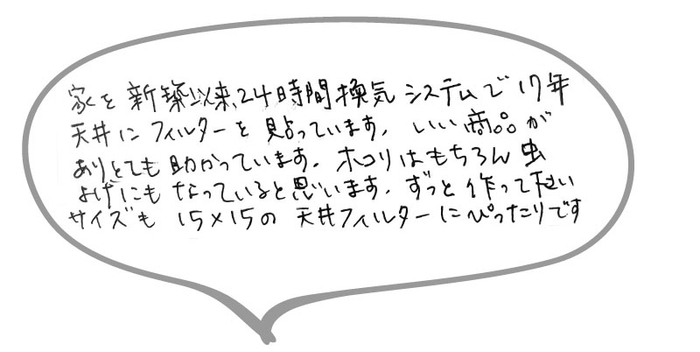 家を新築以来、24時間換気システムで17年
天井にフィルターを貼っています。いい商品が
ありとても助かっています。ホコリはもちろん虫
よけにもなっていると思います。ずっと作って下さい
サイズも15×15の天井フィルターにぴったりです